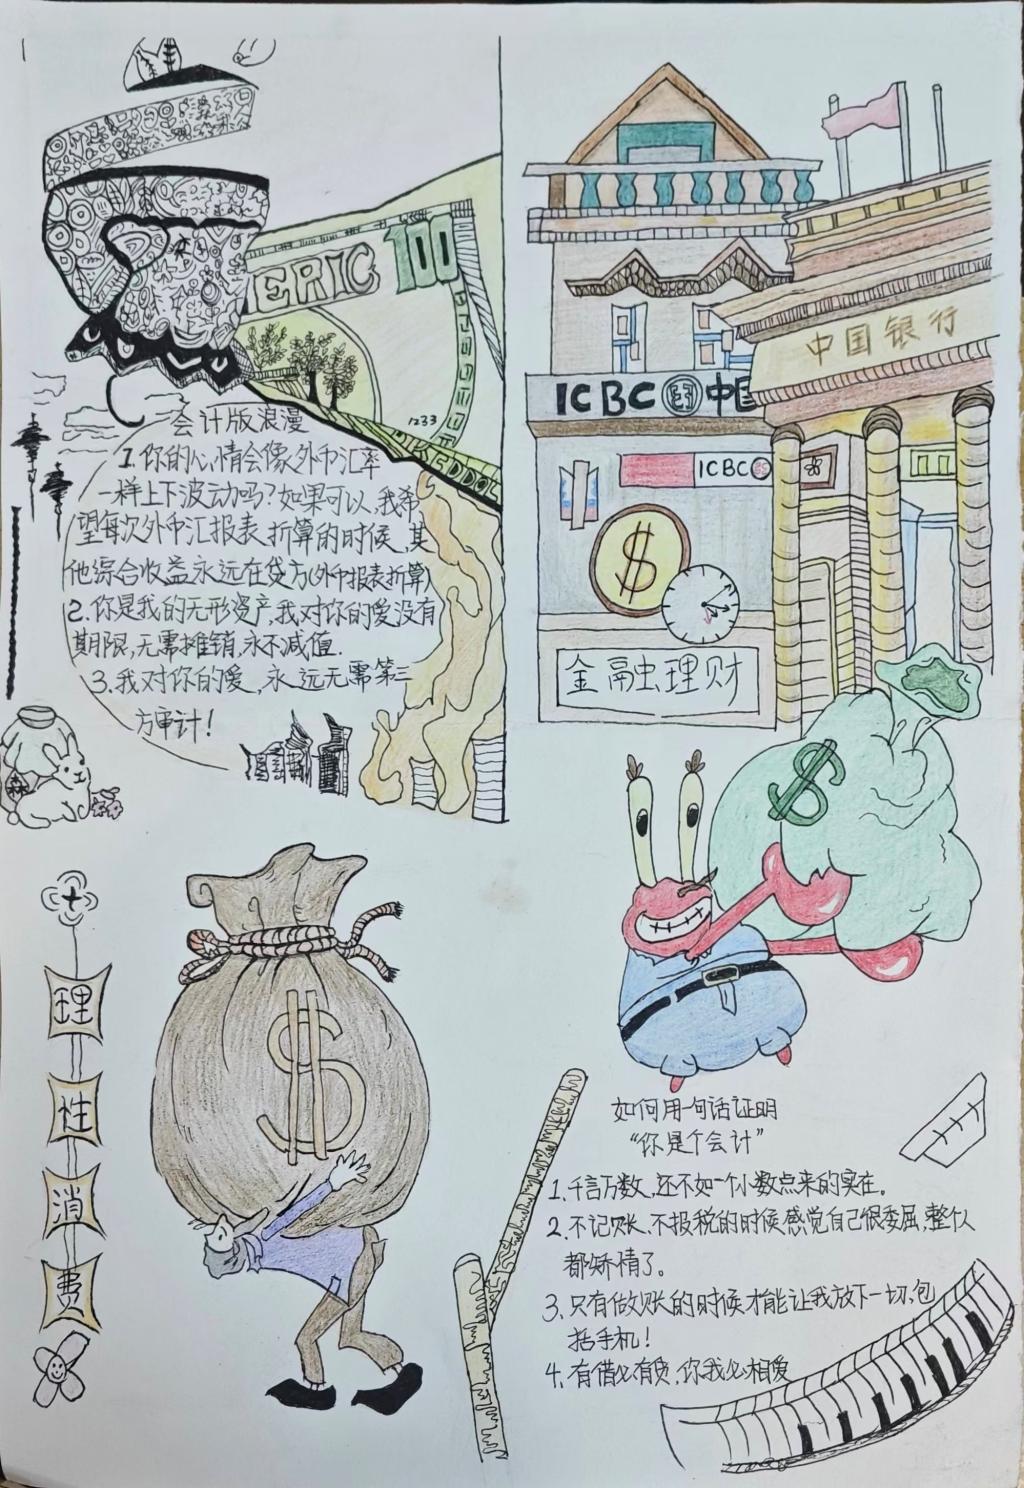 ERIC 100
1233
会计版浪漫
1.你的心情会像外币汇率
一样上下波动吗?如果可以,我希
望每次外币汇报表折算的时候,其
他综合收益永远在贷方(外币报表折算)
2.你是我的无形资产,我对你的爱没有
期限,无需摊销,永不减值.
3.我对你的爱,永远无需第三
方审计!
森
中国银行
ICBC 中国
ICBC
$
金融理财
$
理
性
消
费
$
如何用一句话证明
“你是个会计”
1.千言万数,还不如一个小数点来的实在。
2.不记账、不报税的时候感觉自己很委屈,整个人
都矫情了。
3.只有做账的时候才能让我放下一切,包
括手机!
4.有借必有贷,你我必相爱